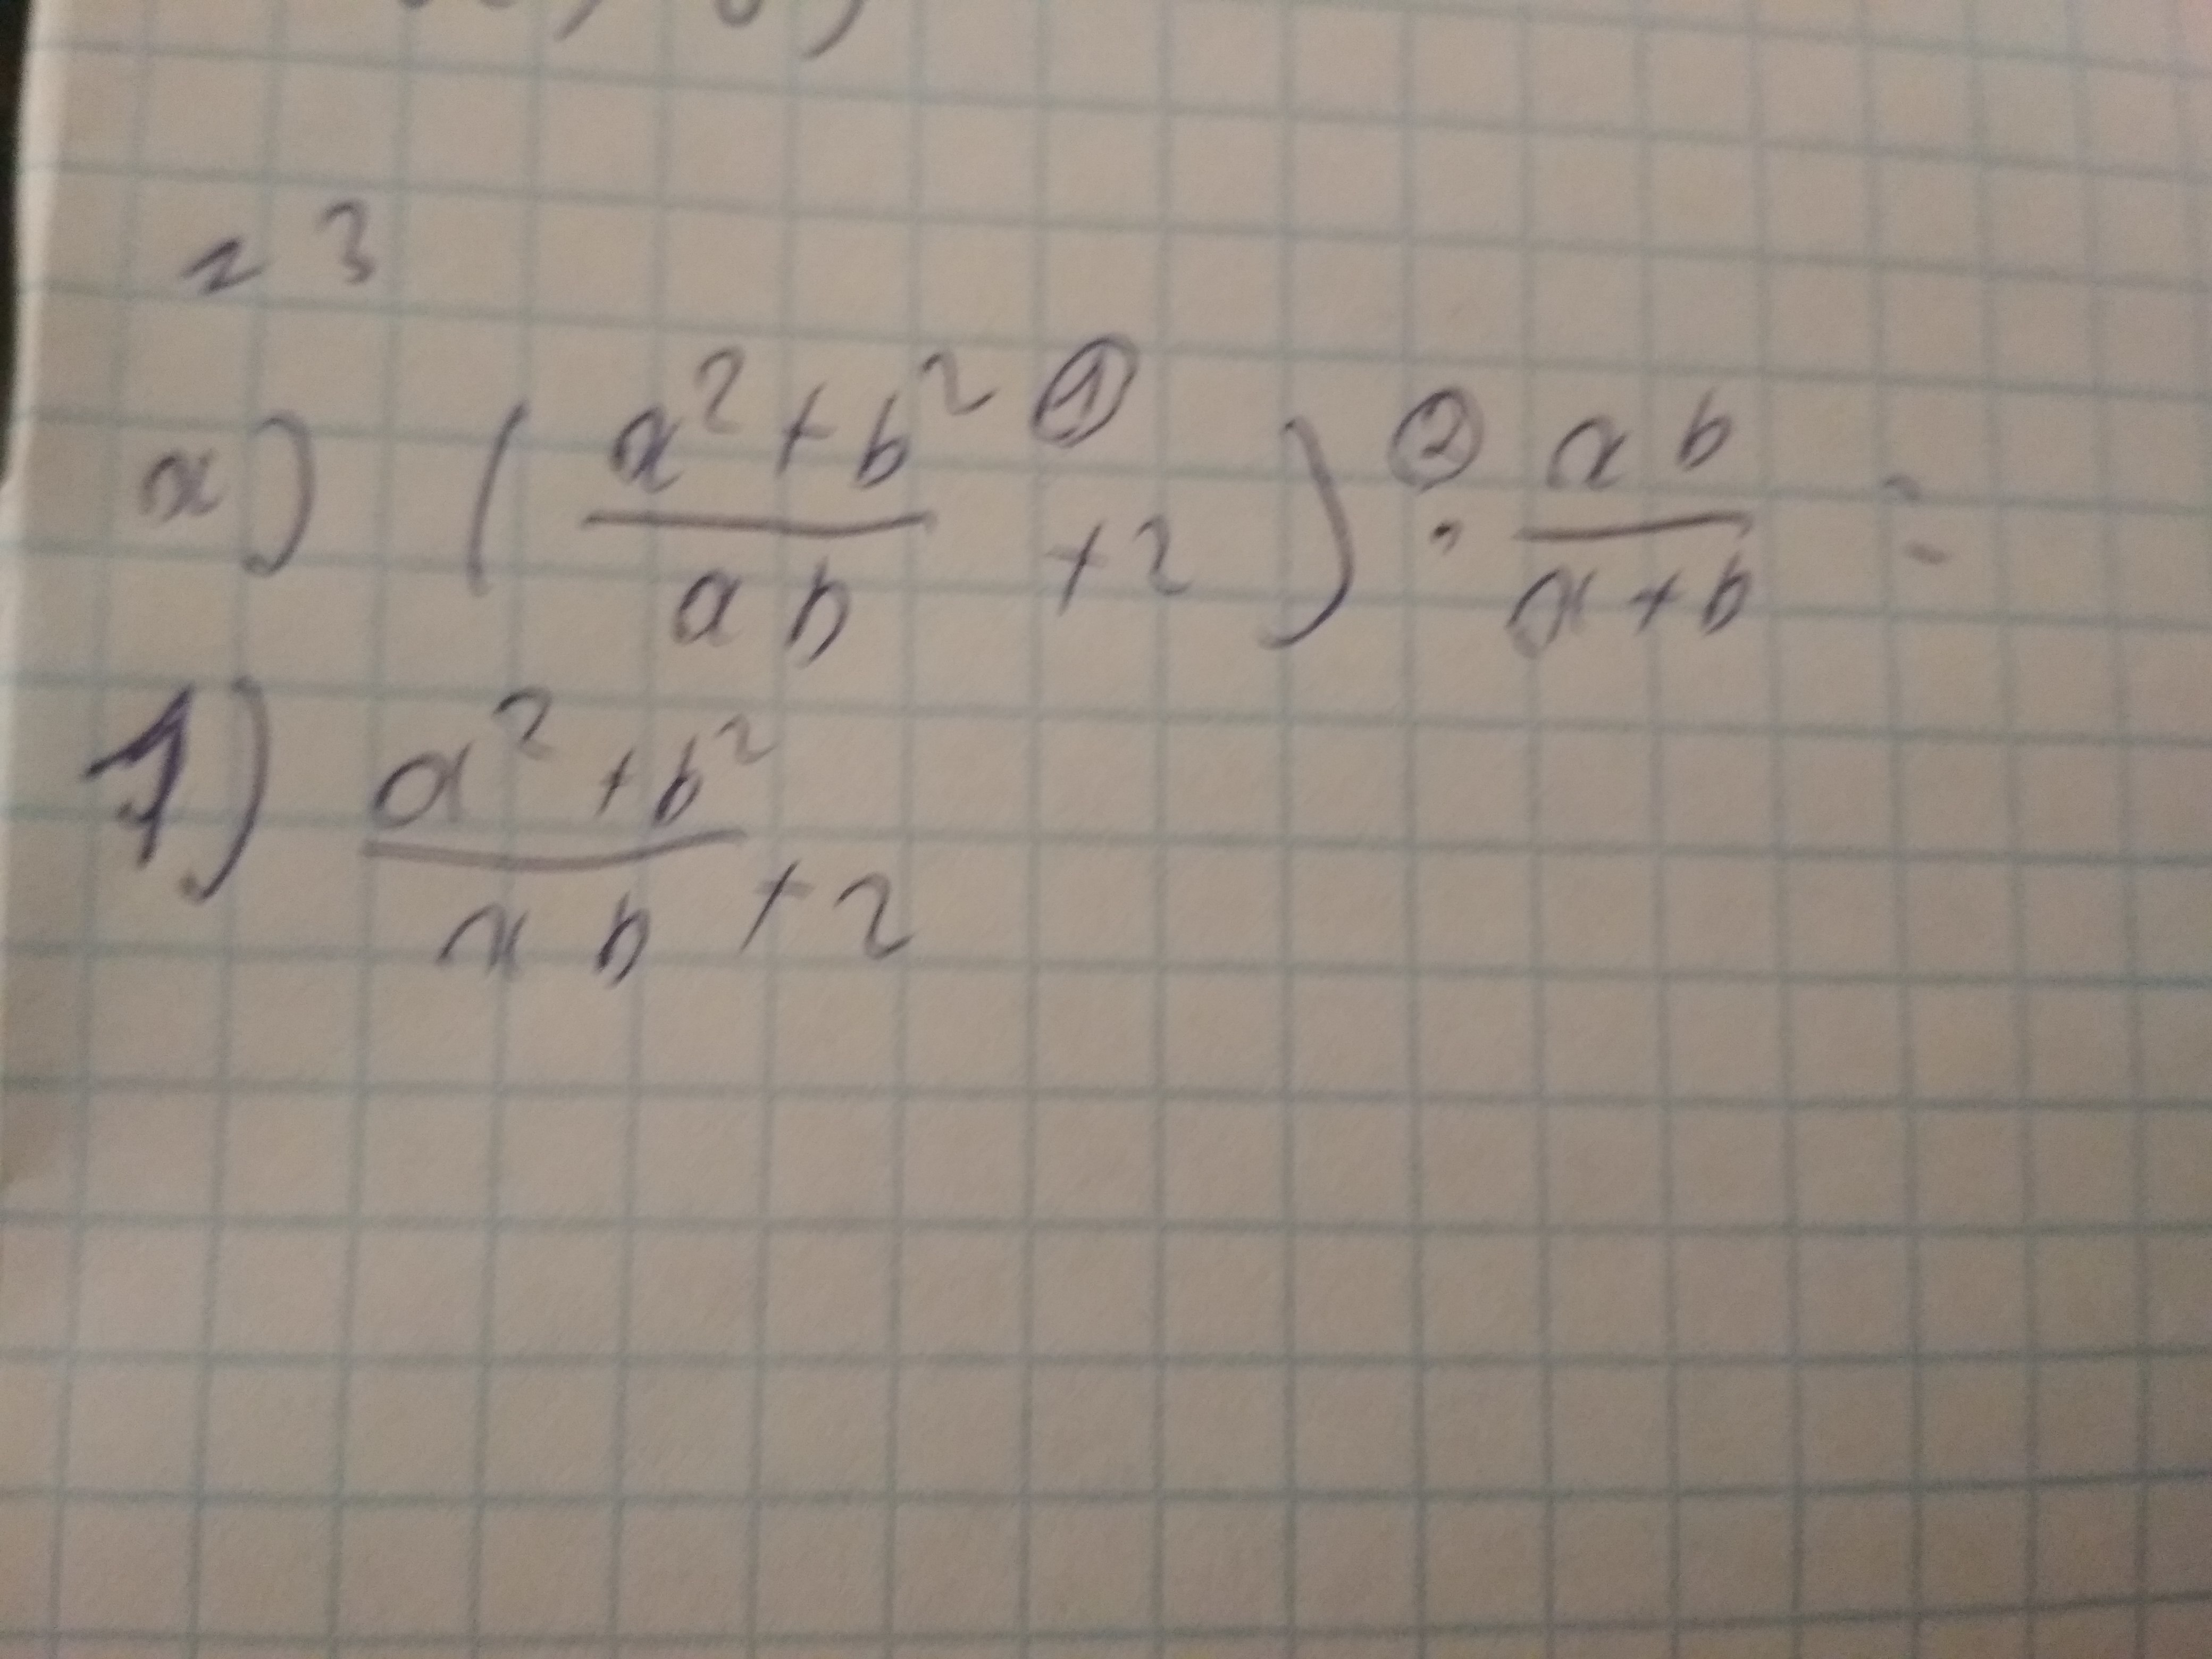 № 3
а) ( (a² + b²)/(ab) ① + 2 ) ② · (ab)/(a + b) =
1) (a² + b²)/(ab) + 2